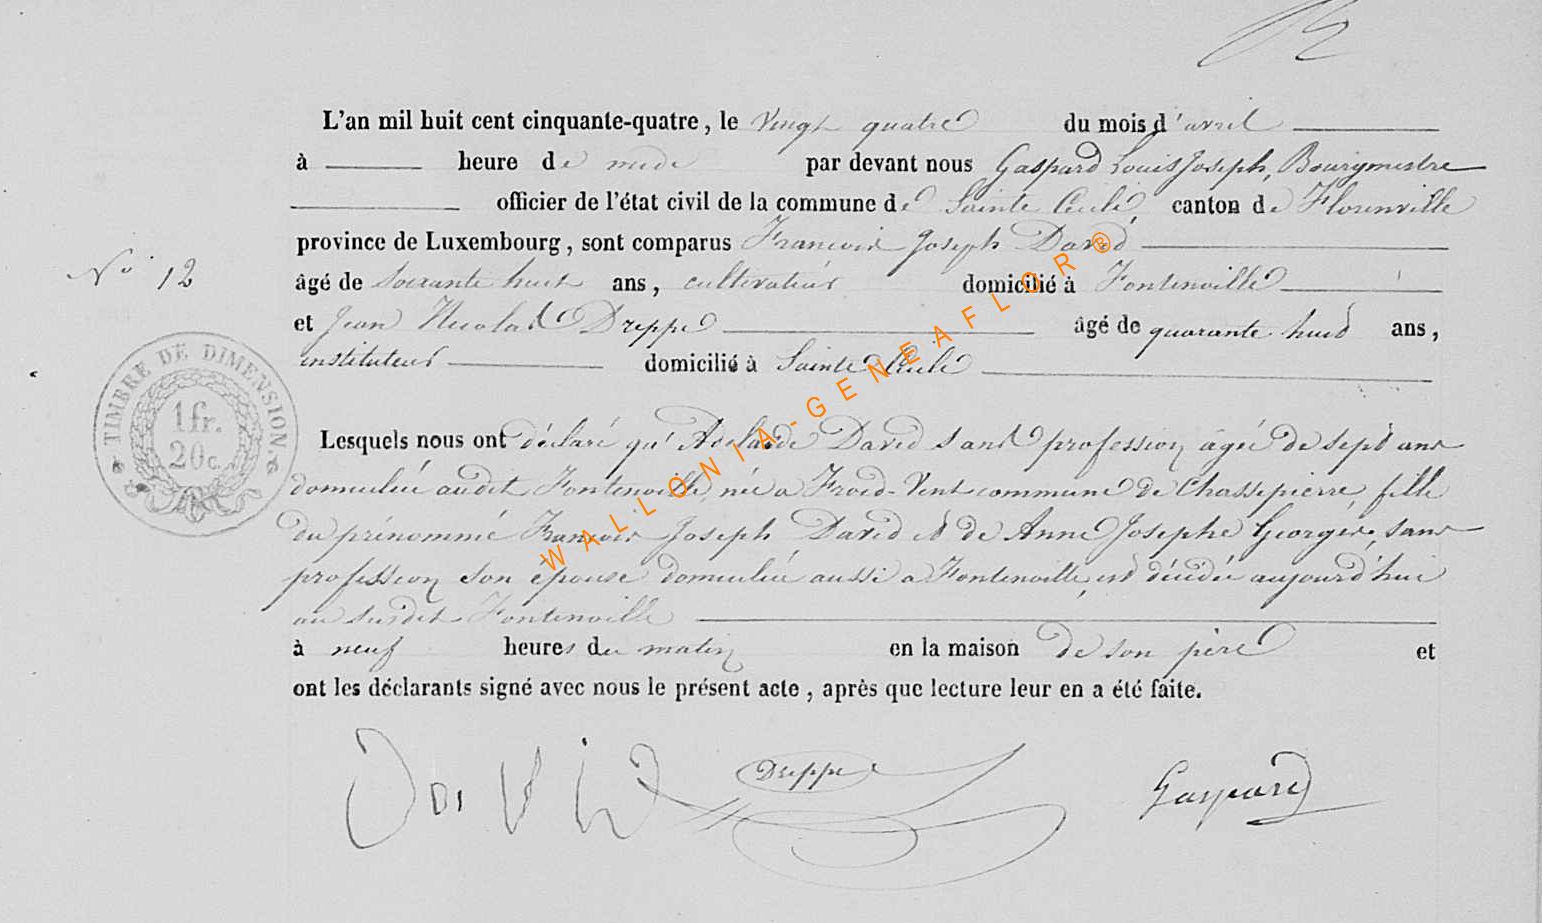 L'an mil huit cent cinquante-quatre, le vingt quatre du mois d'avril
à heure de midi par devant nous Gaspard Louis Joseph, Bourgmestre
officier de l'état civil de la commune de Sainte Cecile, canton de Florenville
province de Luxembourg, sont comparus François Joseph David
N° 12
âgé de soixante huit ans, cultivateur domicilié à Fontenoille
et Jean Nicolas Dreppe âgé de quarante huit ans,
instituteur domicilié à Sainte Cecile
TIMBRE DE DIMENSION.
1 fr.
20 c.
Lesquels nous ont déclaré qu'Adelaïde David sans profession âgée de sept ans
domiciliée audit Fontenoille, née a Froid-Vent commune de Chassepierre, fille
du prénommé François Joseph David et de Anne Josephe Georges, sans
profession son épouse domiciliée aussi a Fontenoille, est décédée aujourd'hui
au susdit Fontenoille
à neuf heures du matin en la maison de son père et
ont les déclarants signé avec nous le présent acte, après que lecture leur en a été faite.
David Dreppe Gaspard
WALLONIA-GENEAFLOR®